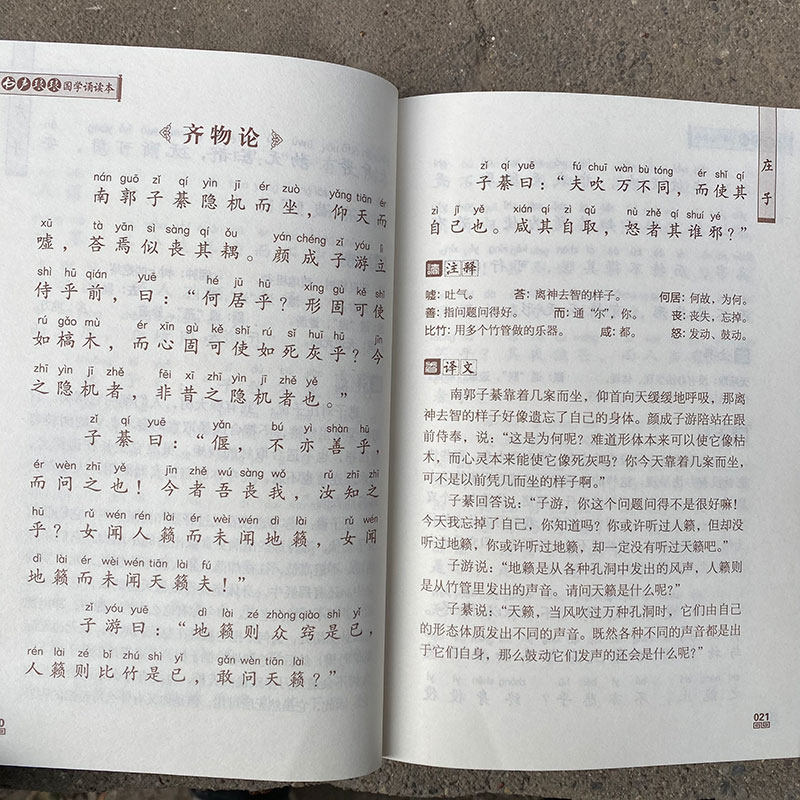 七声琅琅国学诵读本
齐物论
nán guō zǐ qí yìn jī ér zuò yǎng tiān ér
南郭子綦隐机而坐，仰天而
xū tà yān sì sàng qí ǒu yán chéng zǐ yóu lì
嘘，荅焉似丧其耦。颜成子游立
shì hū qián yuē hé jū hū xíng gù kě shǐ
侍乎前，曰：“何居乎？形固可使
rú gǎo mù ér xīn gù kě shǐ rú sǐ huī hū jīn
如槁木，而心固可使如死灰乎？今
zhī yìn jī zhě fēi xī zhī yìn jī zhě yě
之隐机者，非昔之隐机者也。”
zǐ qí yuē yǎn bú yì shàn hū
子綦曰：“偃，不亦善乎，
ér wèn zhī yě jīn zhě wú sàng wǒ rǔ zhī zhī
而问之也！今者吾丧我，汝知之
hū rǔ wén rén lài ér wèi wén dì lài rǔ wén
乎？女闻人籁而未闻地籁，女闻
dì lài ér wèi wén tiān lài fú
地籁而未闻天籁夫！”
zǐ yóu yuē dì lài zé zhòng qiào shì yǐ
子游曰：“地籁则众窍是已，
rén lài zé bǐ zhú shì yǐ gǎn wèn tiān lài
人籁则比竹是已，敢问天籁？”
庄子
zǐ qí yuē fú chuī wàn bù tóng ér shǐ qí
子綦曰：“夫吹万不同，而使其
zì jǐ yě xián qí zì qǔ nù zhě qí shuí yé
自己也。咸其自取，怒者其谁邪？”
注释
嘘：吐气。 荅：离神去智的样子。 何居：何故，为何。
善：指问题问得好。 而：通“尔”，你。 丧：丧失、忘掉。
比竹：用多个竹管做的乐器。 咸：都。 怒：发动、鼓动。
译文
南郭子綦靠着几案而坐，仰首向天缓缓地呼吸，那离
神去智的样子好像遗忘了自己的身体。颜成子游陪站在跟
前侍奉，说：“这是为何呢？难道形体本来可以使它像枯
木，而心灵本来能使它像死灰吗？你今天靠着几案而坐，
可不是以前凭几而坐的样子啊。”
子綦回答说：“子游，你这个问题问得不是很好嘛！
今天我忘掉了自己，你知道吗？你或许听过人籁，但却没
听过地籁，你或许听过地籁，却一定没有听过天籁吧。”
子游说：“地籁是从各种孔洞中发出的风声，人籁则
是从竹管里发出的声音。请问天籁是什么呢？”
子綦说：“天籁，当风吹过万种孔洞时，它们由自己
的形态体质发出不同的声音。既然各种不同的声音都是出
于它们自身，那么鼓动它们发声的还会是什么呢？”
021